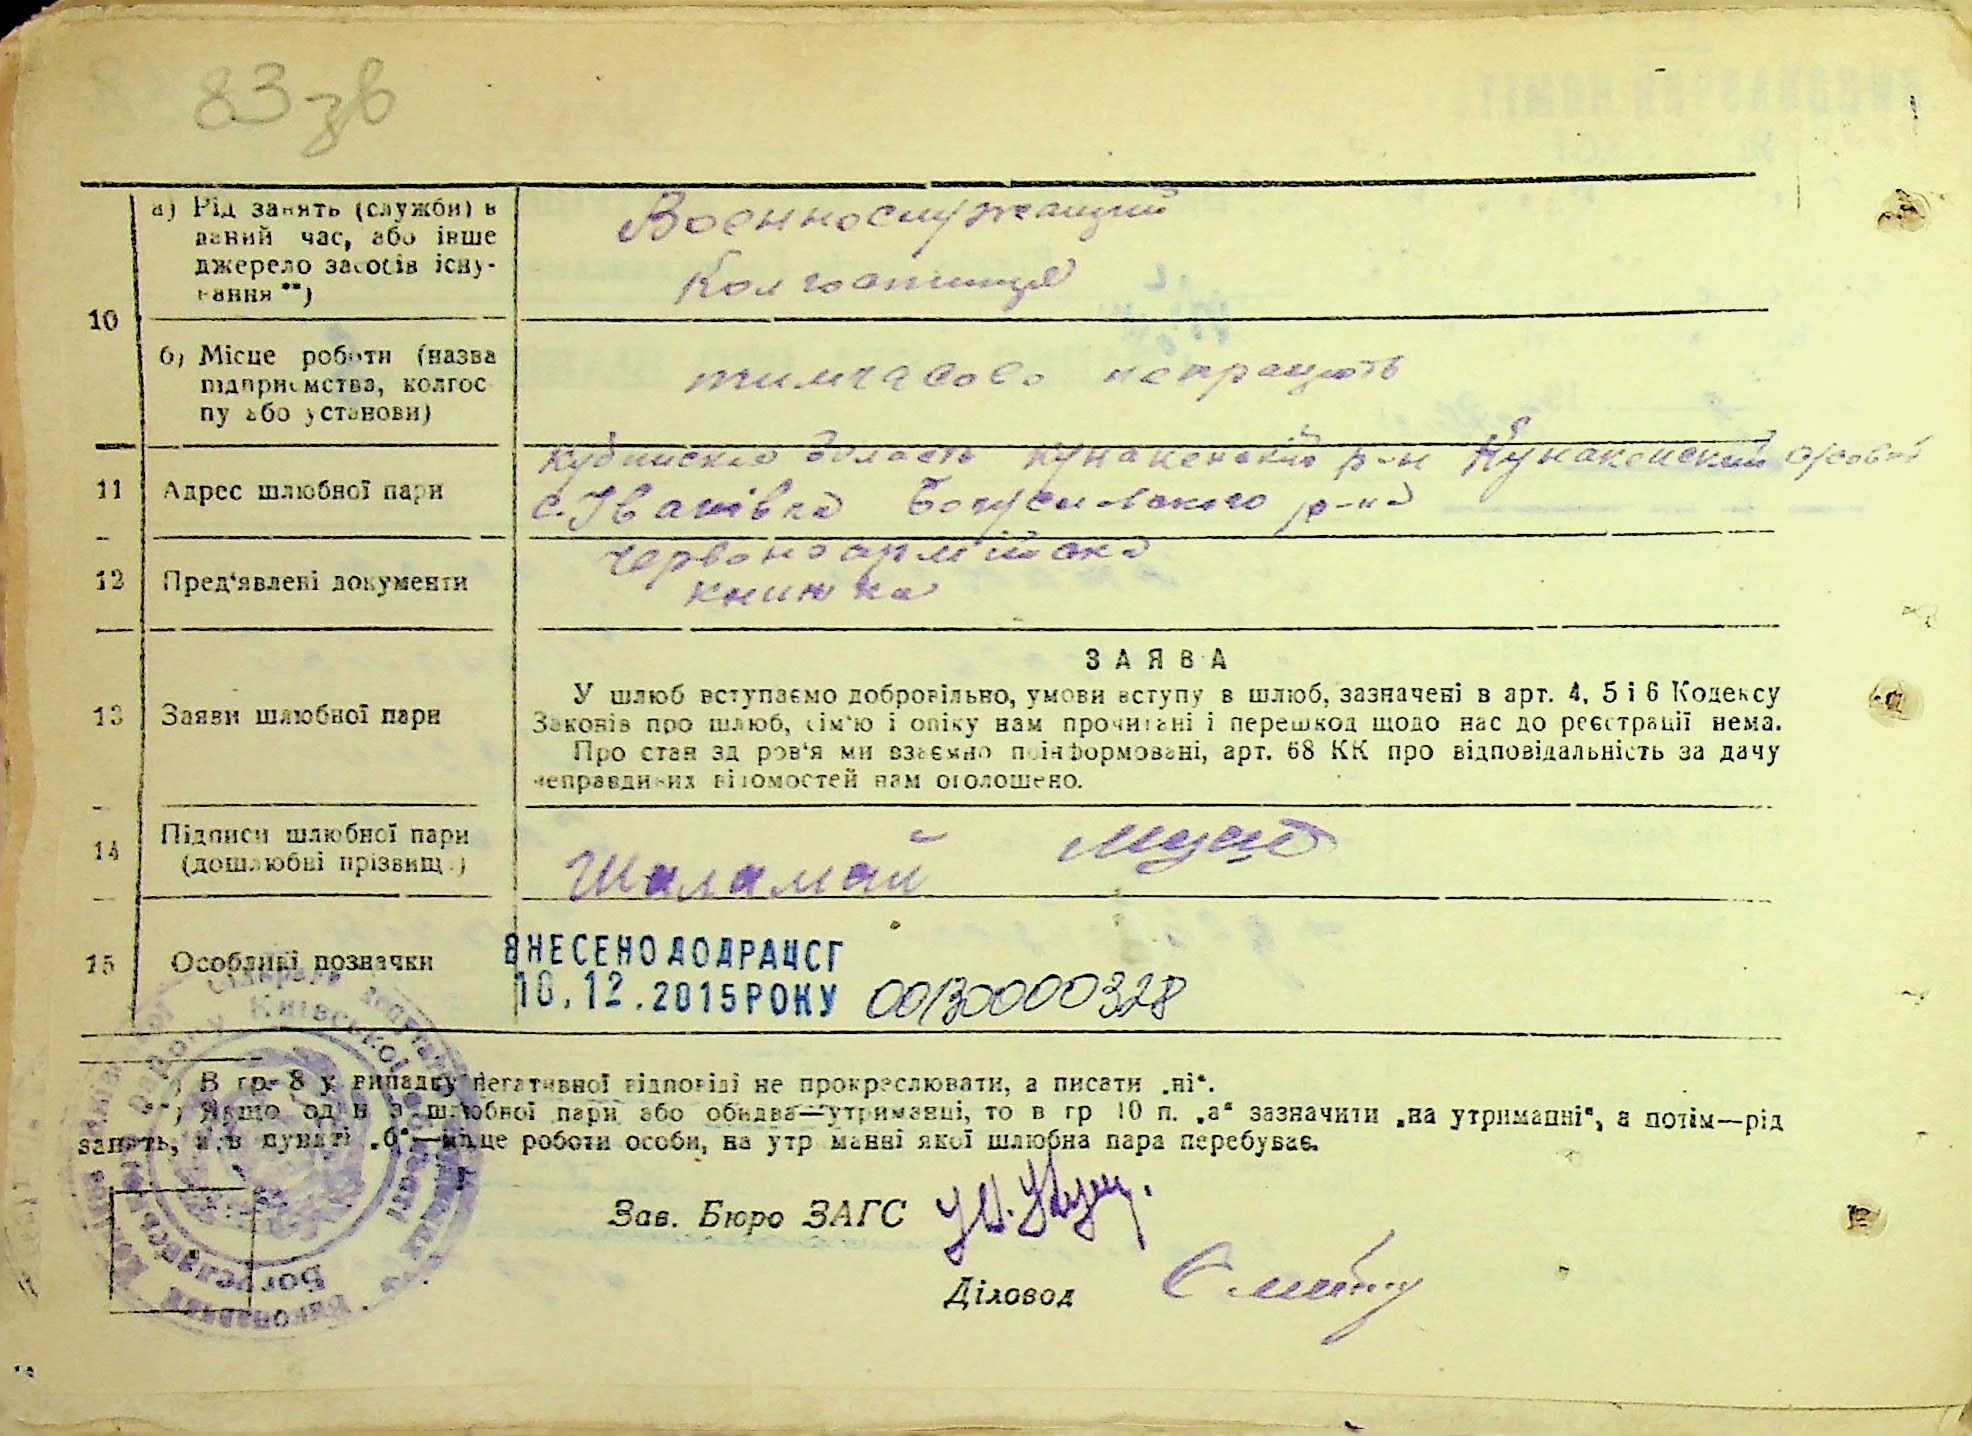 83 зв
а) Рід занять (служби) в
даний час, або інше
джерело засобів існу-
вання **)
Военнослужащий
Колгоспниця
10
б) Місце роботи (назва
підприємства, колгос-
пу або установи)
тимчасово не працюють
11 Адрес шлюбної пари
область р-н
с. Іванівка Богуславського р-на
12 Пред'явлені документи
Червоноармійська
книжка
13 Заяви шлюбної пари
ЗАЯВА
У шлюб вступаємо добровільно, умови вступу в шлюб, зазначені в арт. 4, 5 і 6 Кодексу
Законів про шлюб, сім'ю і опіку нам прочитані і перешкод щодо нас до реєстрації нема.
Про стан здоров'я ми взаємно поінформовані, арт. 68 КК про відповідальність за дачу
неправдивих відомостей нам оголошено.
14 Підписи шлюбної пари
(дошлюбні прізвища)
Шаламай
15 Особливі позначки
ВНЕСЕНО ДО ДРАЦСГ
10.12.2015 РОКУ 00130000328
*) В гр. 8 у випадку негативної відповіді не прокреслювати, а писати „ні“.
**) Якщо один з шлюбної пари або обидва—утриманці, то в гр 10 п. „а“ зазначити „на утриманні“, а потім—рід
занять, а в пункті „б“—місце роботи особи, на утриманні якої шлюбна пара перебуває.
Зав. Бюро ЗАГС
Діловод